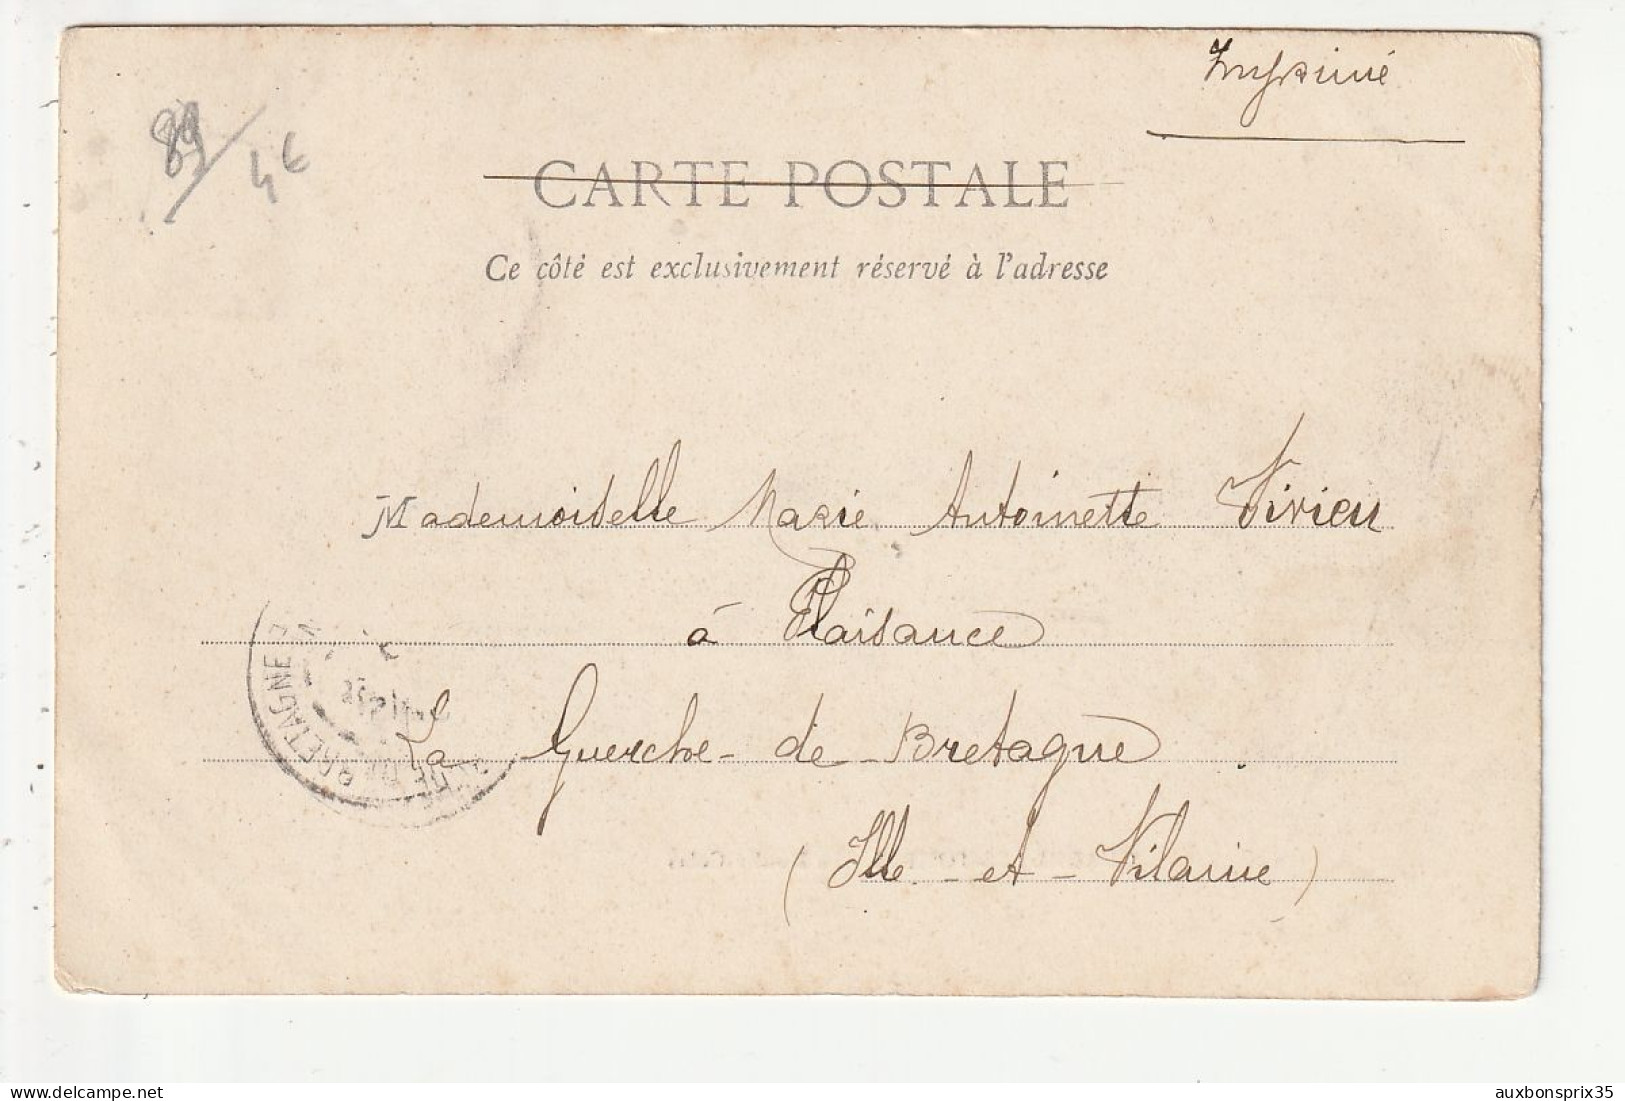 Imprimé
89/
4€
CARTE POSTALE
Ce côté est exclusivement réservé à l'adresse
Mademoiselle Marie Antoinette Vivien
à Plaisance
La Guerche-de-Bretagne
(Ille-et-Vilaine)
BRETAGNE
delcampe.net
auxbonsprix35